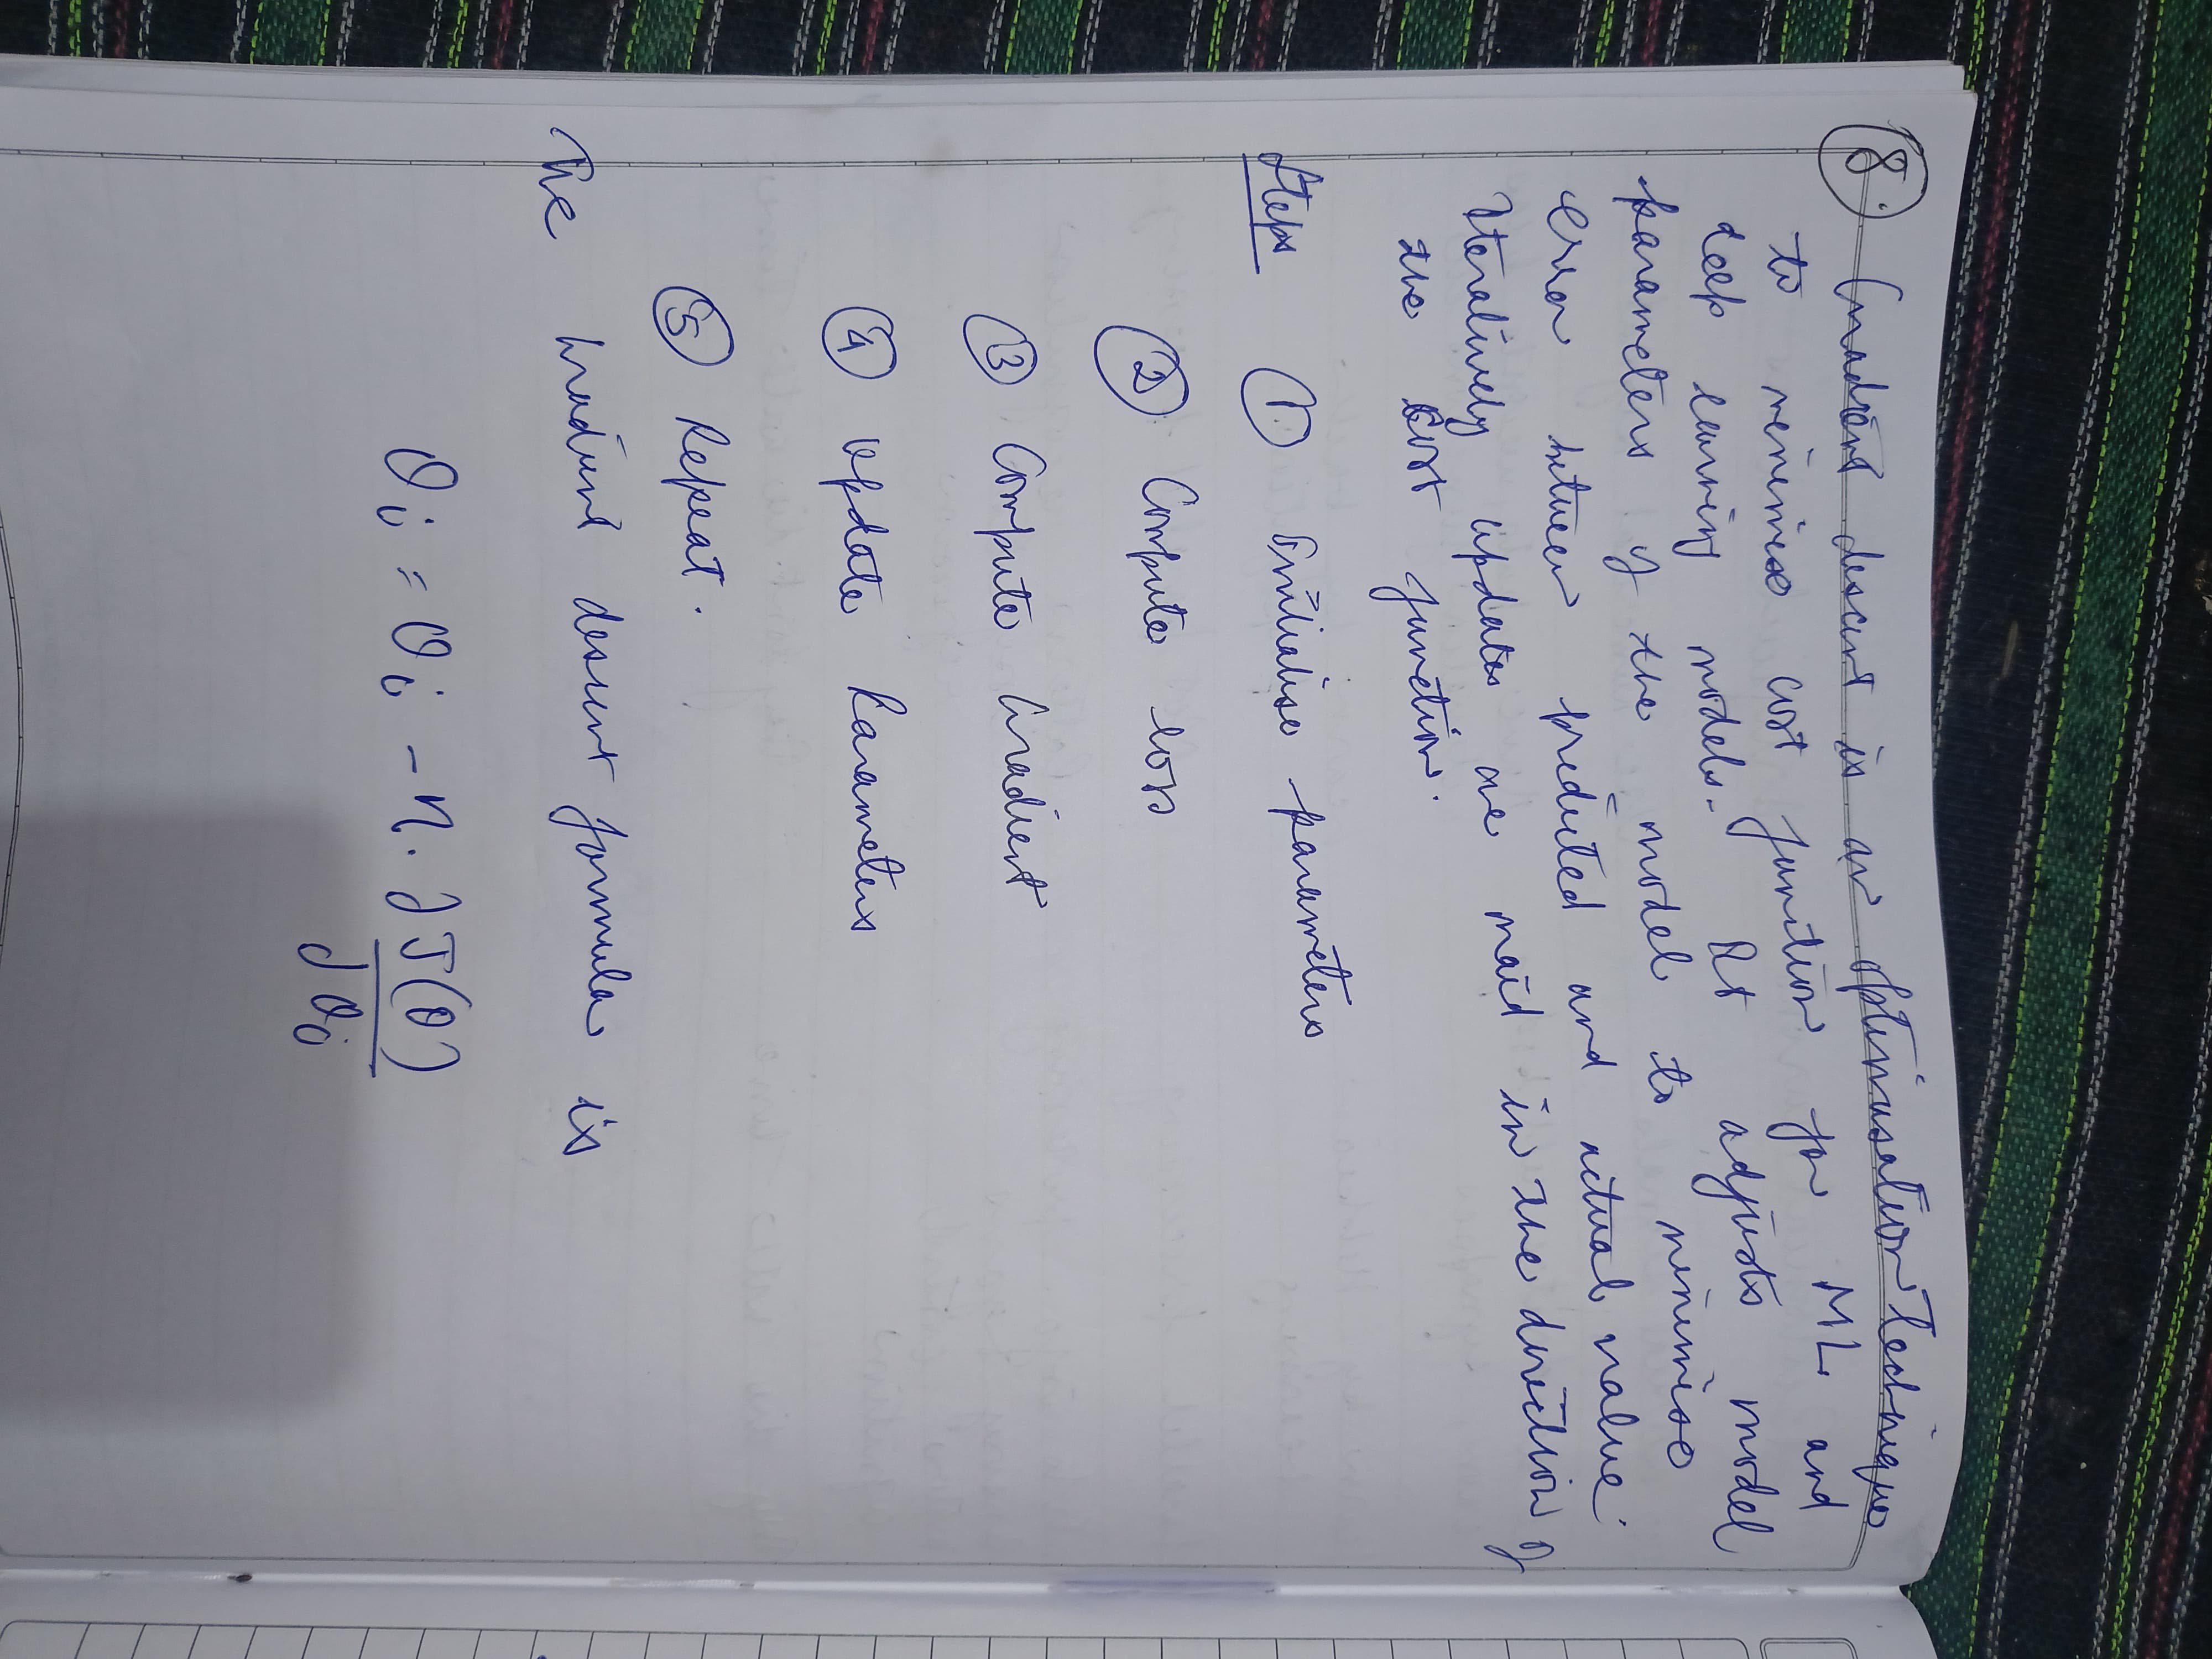 8. Gradient descent is an optimisation technique
to minimise cost function for ML and
deep learning models. It adjusts model
parameters of the model to minimise
error between predicted and actual value.
Iteratively updates are maid in the direction of
the cost function.
Steps 1. Initialise parameters
2 Compute loss
3 Compute Gradient
4 Update Parameters
5 Repeat.
The Gradient descent formula is
θi = θi - η. ∂J(θ)
∂θi